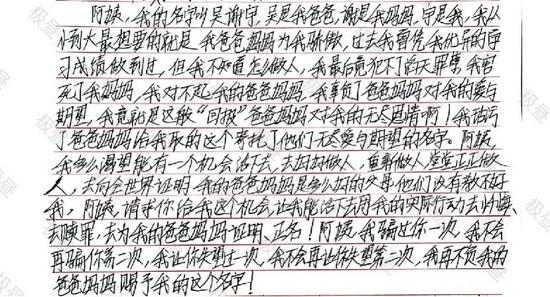 阿姨，我的名字叫吴谢宇，吴是我爸爸，谢是我妈妈，宇是我，我从
小到大最想要的就是我爸爸妈妈为我骄傲，过去我曾凭我优异的学
习成绩做到过，但我不知道怎么做人，我最后竟犯下了滔天罪孽，我害
死了我妈妈，我对不起我的爸爸妈妈，我辜负了爸爸妈妈对我的爱与
期望，我竟就是这般“回报”爸爸妈妈对我的无尽恩情啊！我玷污
了爸爸妈妈给我取的这个寄托了他们无尽爱与期望的名字。阿姨，
我多么渴望能有一个机会活下去，去好好做人，重新做人，堂堂正正做
人，去向全世界证明，我的爸爸妈妈是多么好的父母，他们没有教不好
我，阿姨，请求你给我这个机会，让我能活下去用我的实际行动去忏悔
去赎罪，去为我的爸爸妈妈证明、正名！阿姨，我骗过你一次，我不会
再骗你第二次，我让你失望过一次，我不会再让你失望第二次，我再不负我的
爸爸妈妈赐予我的这个名字！
极昼